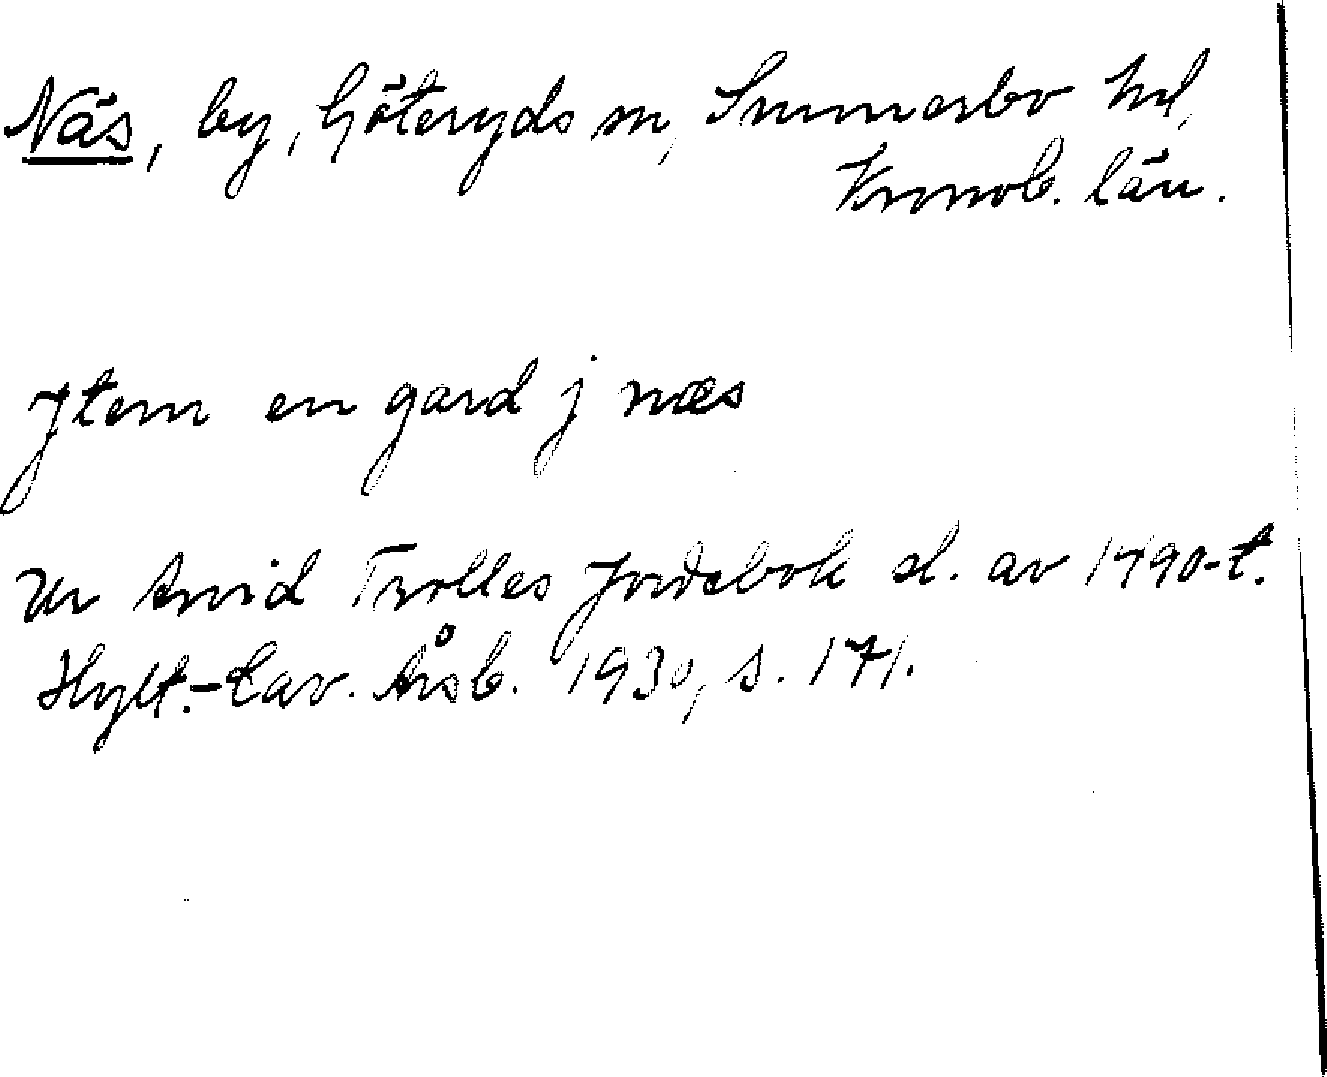 Näs, by, Göteryds sn, Sunnerbo hd,
Kronob. län.
Jtem en gard j næs
Ur Arvid Trolles Jordebok sl. av 1490-t.
Hylt.-Cav. Årsb. 1930, s. 171.